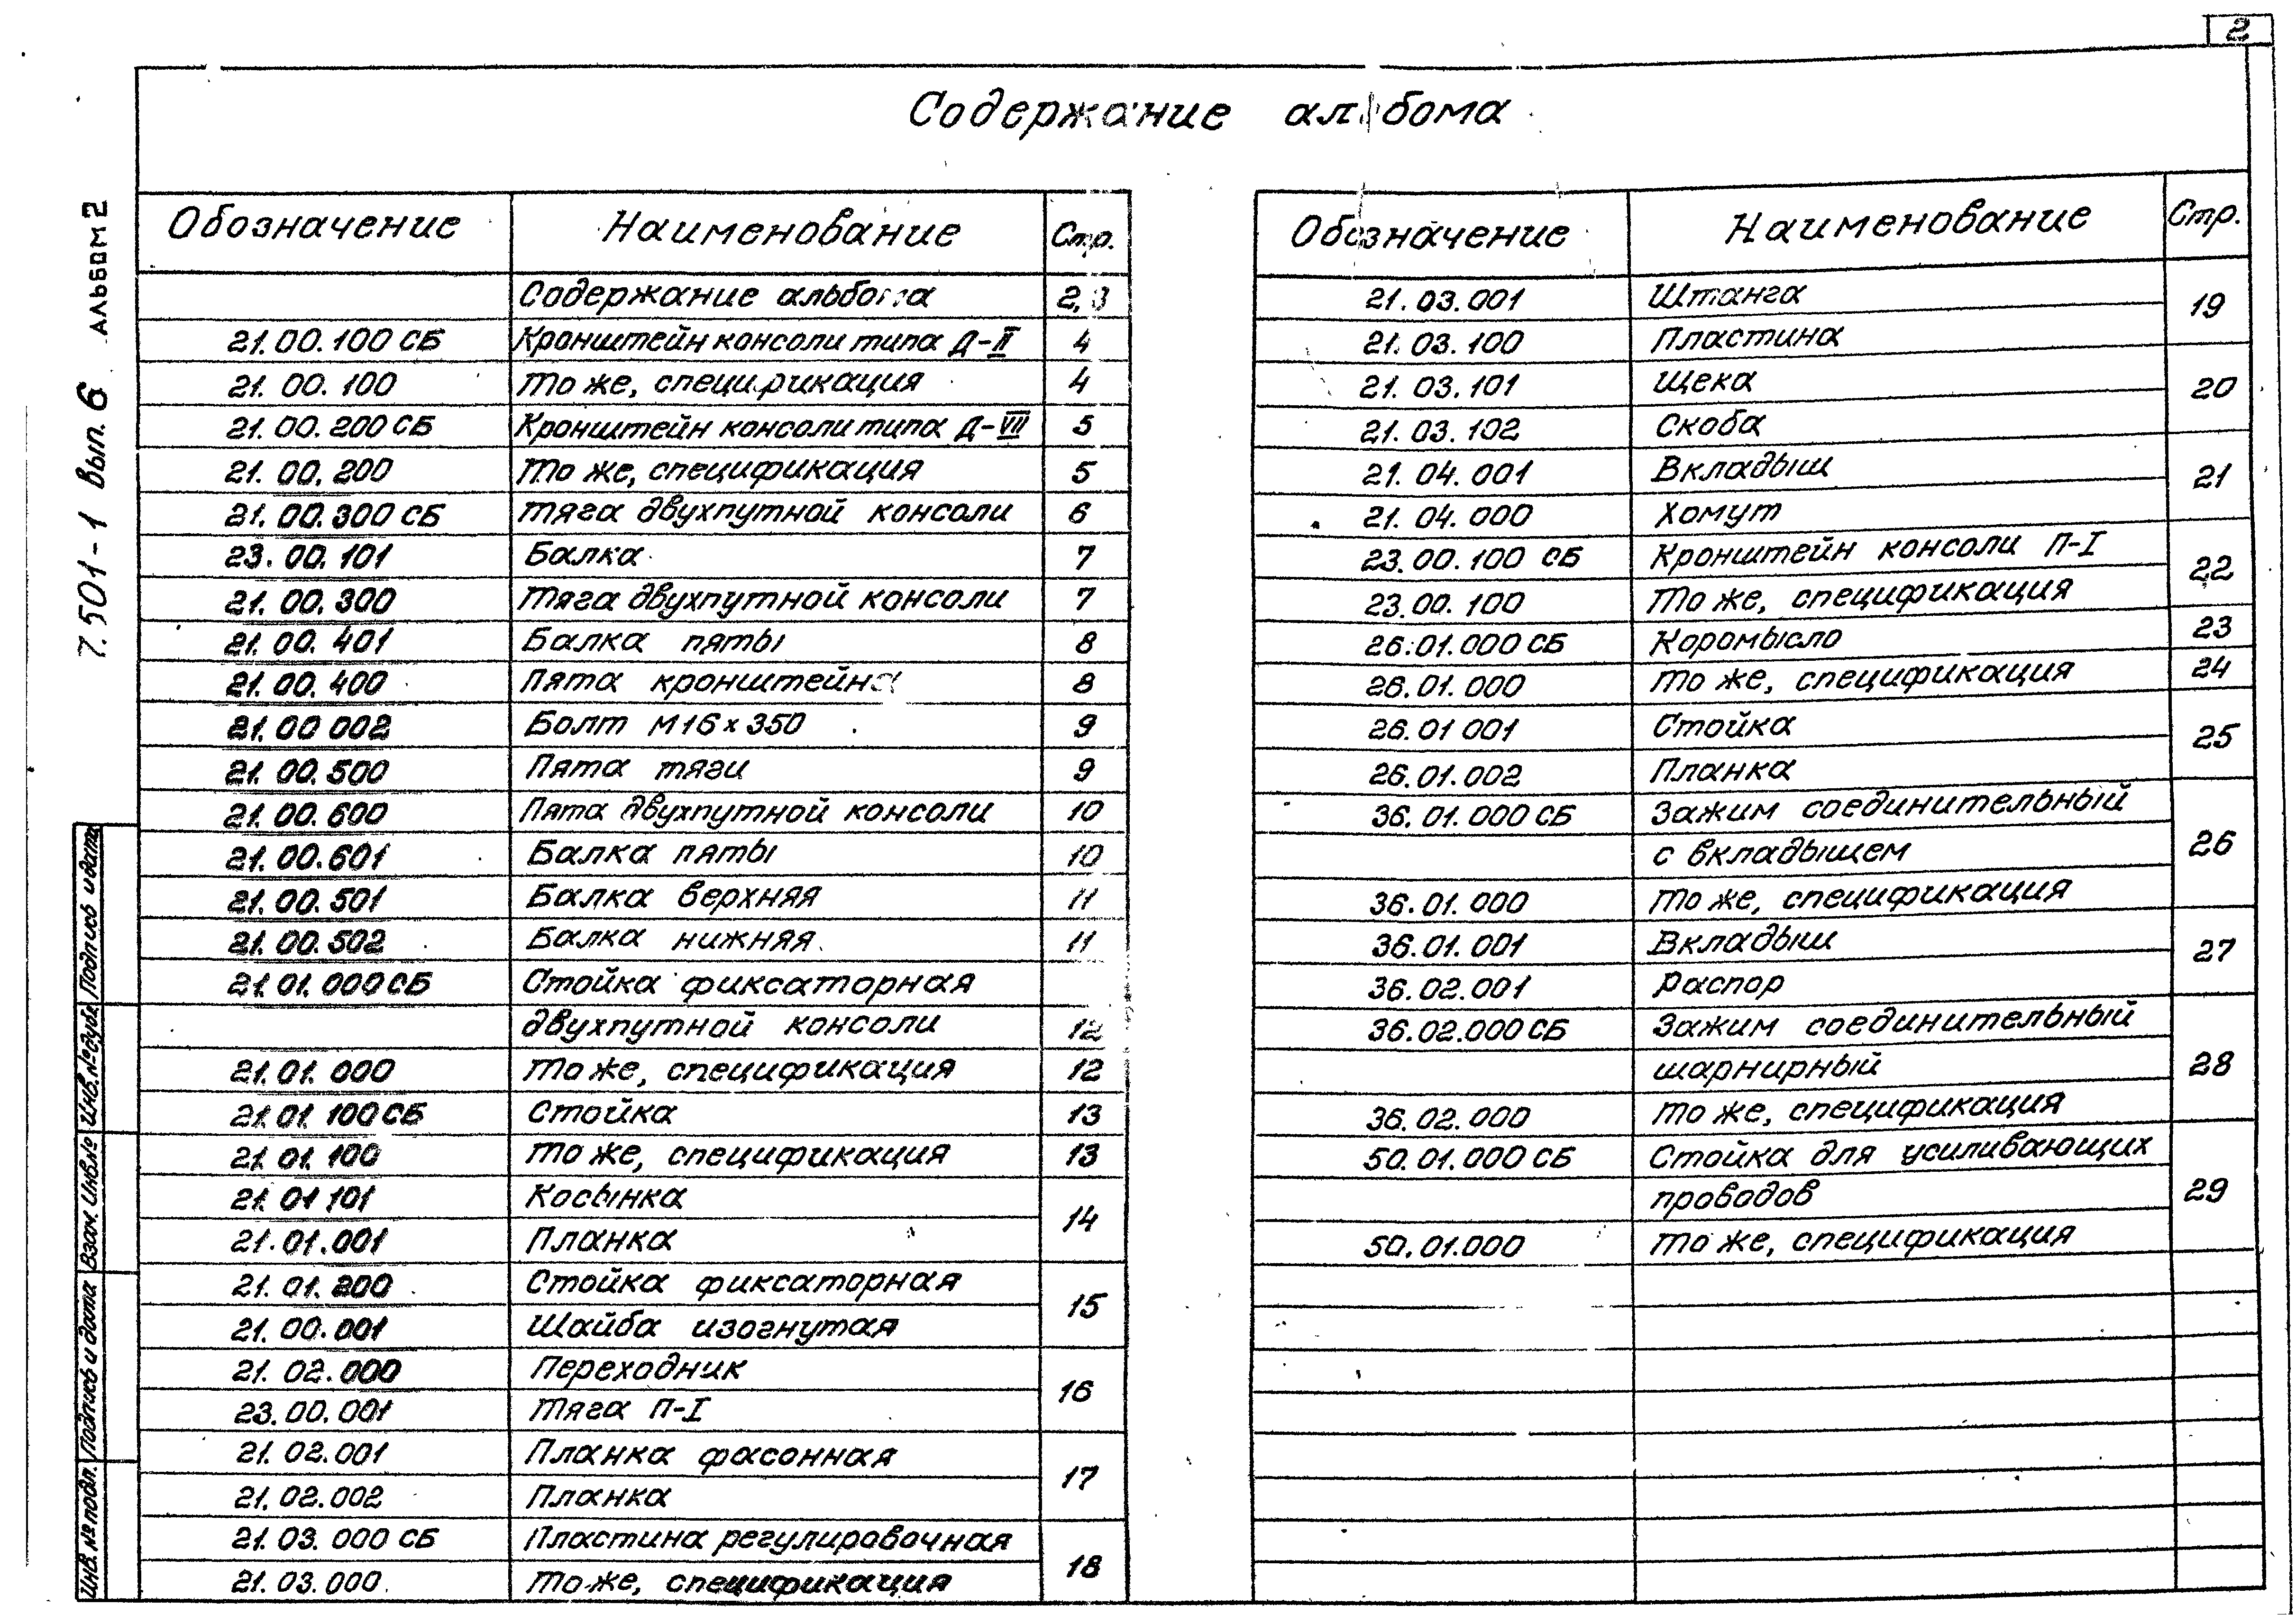 2
Содержание альбома
7.501-1 Вып. 6 АЛЬБОМ 2
Обозначение Наименование Стр.
Содержание альбома 2,3
21.00.100 СБ Кронштейн консоли типа Д-II 4
21.00.100 То же, спецификация 4
21.00.200 СБ Кронштейн консоли типа Д-VII 5
21.00.200 То же, спецификация 5
21.00.300 СБ Тяга двухпутной консоли 6
23.00.101 Балка 7
21.00.300 Тяга двухпутной консоли 7
21.00.401 Балка пяты 8
21.00.400 Пята кронштейна 8
21.00 002 Болт М16х350 9
21.00.500 Пята тяги 9
21.00.600 Пята двухпутной консоли 10
21.00.601 Балка пяты 10
21.00.501 Балка верхняя 11
21.00.502 Балка нижняя 11
21.01.000 СБ Стойка фиксаторная
двухпутной консоли 12
21.01.000 То же, спецификация 12
21.01.100 СБ Стойка 13
21.01.100 То же, спецификация 13
21.01 101 Косынка 14
21.01.001 Планка
21.01.200 Стойка фиксаторная 15
21.00.001 Шайба изогнутая
21.02.000 Переходник 16
23.00.001 Тяга П-I
21.02.001 Планка фасонная 17
21.02.002 Планка
21.03.000 СБ Пластина регулировочная 18
21.03.000 То же, спецификация
Обозначение Наименование Стр.
21.03.001 Штанга 19
21.03.100 Пластина
21.03.101 Щека 20
21.03.102 Скоба
21.04.001 Вкладыш 21
21.04.000 Хомут
23.00.100 СБ Кронштейн консоли П-I 22
23.00.100 То же, спецификация
26.01.000 СБ Коромысло 23
26.01.000 То же, спецификация 24
26.01 001 Стойка 25
26.01.002 Планка
36.01.000 СБ Зажим соединительный
с вкладышем 26
36.01.000 То же, спецификация
36.01.001 Вкладыш 27
36.02.001 Распор
36.02.000 СБ Зажим соединительный
шарнирный 28
36.02.000 То же, спецификация
50.01.000 СБ Стойка для усиливающих
проводов 29
50.01.000 То же, спецификация
Инв. № подл. Подпись и дата Взам. Инв.№ Инв.№ дубл. Подпись и дата